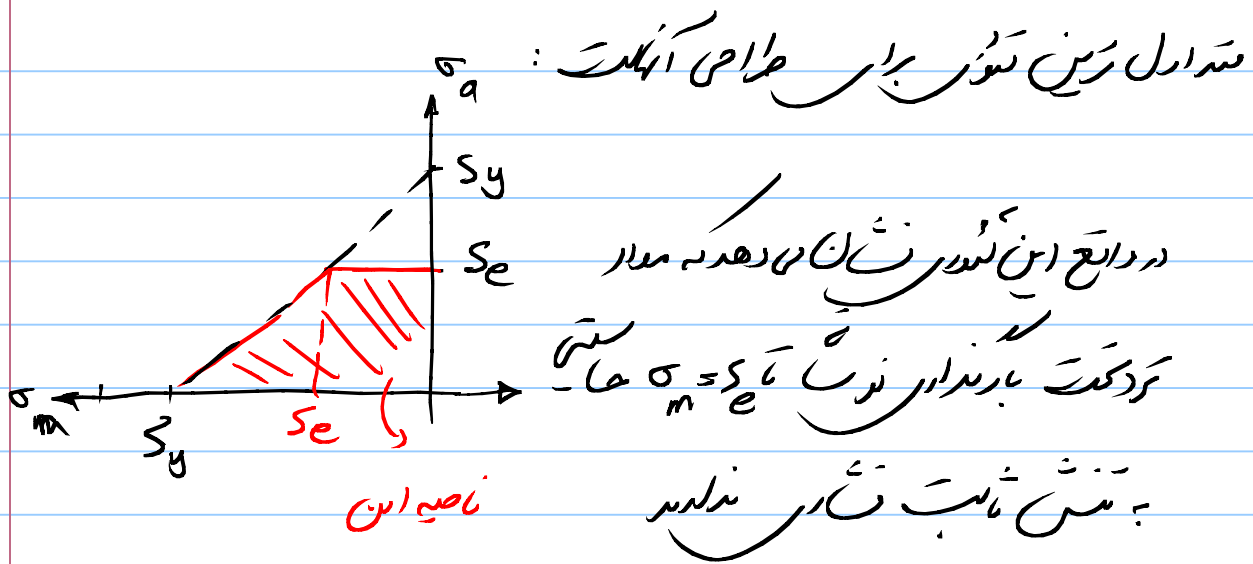 متداول ترین تئوری برای طراحی آنهاست :
σa
Sy
Se
در واقع این تئوری نشان می دهد که مواد
ترد تحت بارگذاری نوسانی تا σm = Se حساسیتی
به تنش ثابت فشاری ندارند
σm
Sy
Se
ناحیه امن